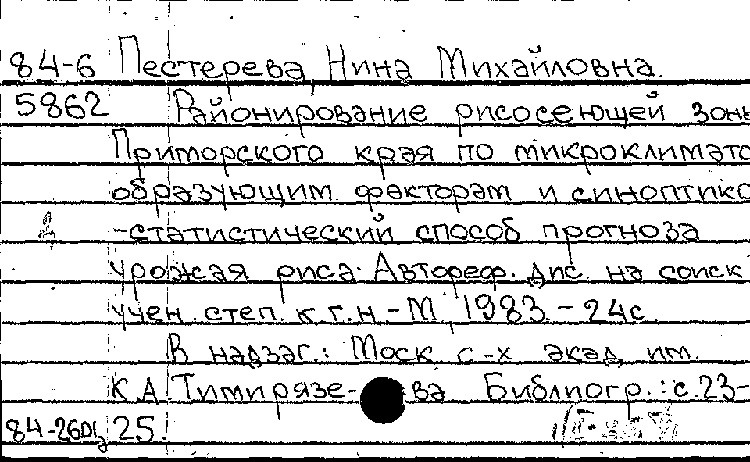 84-6 Пестерева, Нина Михайловна.
5862 Районирование рисосеющей зоны
Приморского края по микроклимато
образующим факторам и синоптико
-статистический способ прогноза
урожая риса: Автореф. дис. на соиск
учен. степ. к.г.н - М, 1983 - 24с
В надзаг.: Моск с-х акад им.
К.А. Тимирязева Библиогр.: с.23-
84-26д 25.